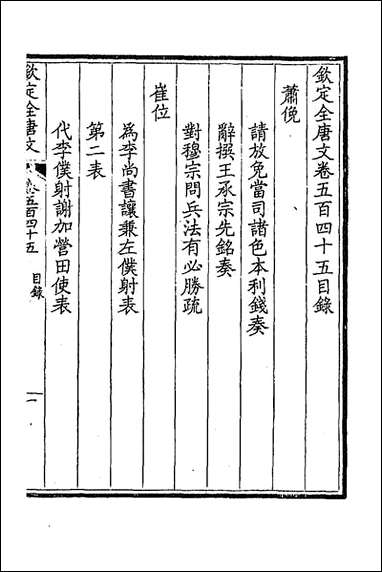 欽定全唐文卷五百四十五目錄
蕭俛
請放免當司諸色本利錢奏
辭撰王承宗先銘奏
對穆宗問兵法有必勝疏
崔位
為李尚書讓兼左僕射表
第二表
代李僕射謝加營田使表
欽定全唐文
卷五百四十五
目錄
一